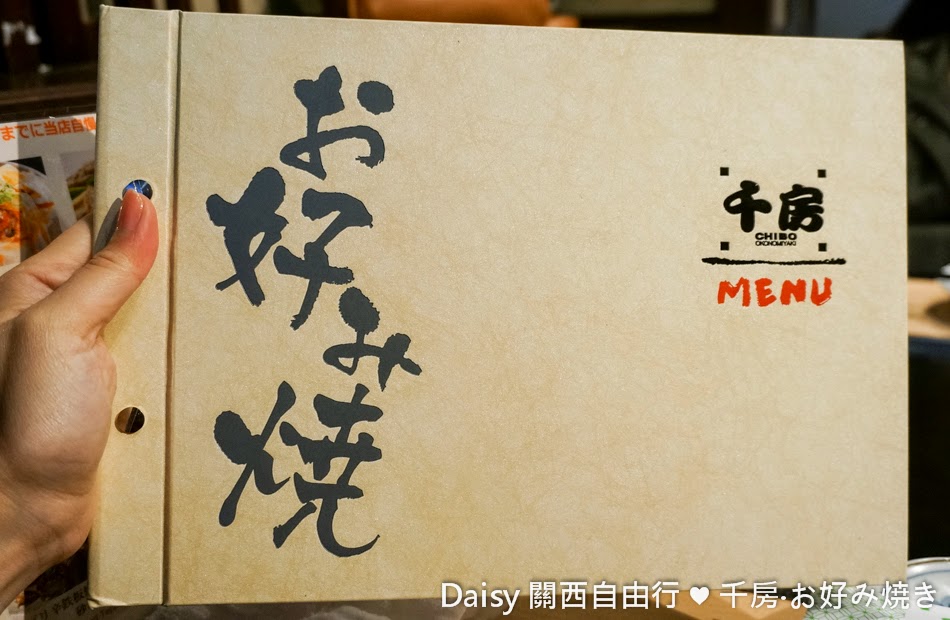 お好み焼
千房
CHIBO
OKONOMIYAKI
MENU
Daisy 關西自由行 ♥ 千房·お好み焼き